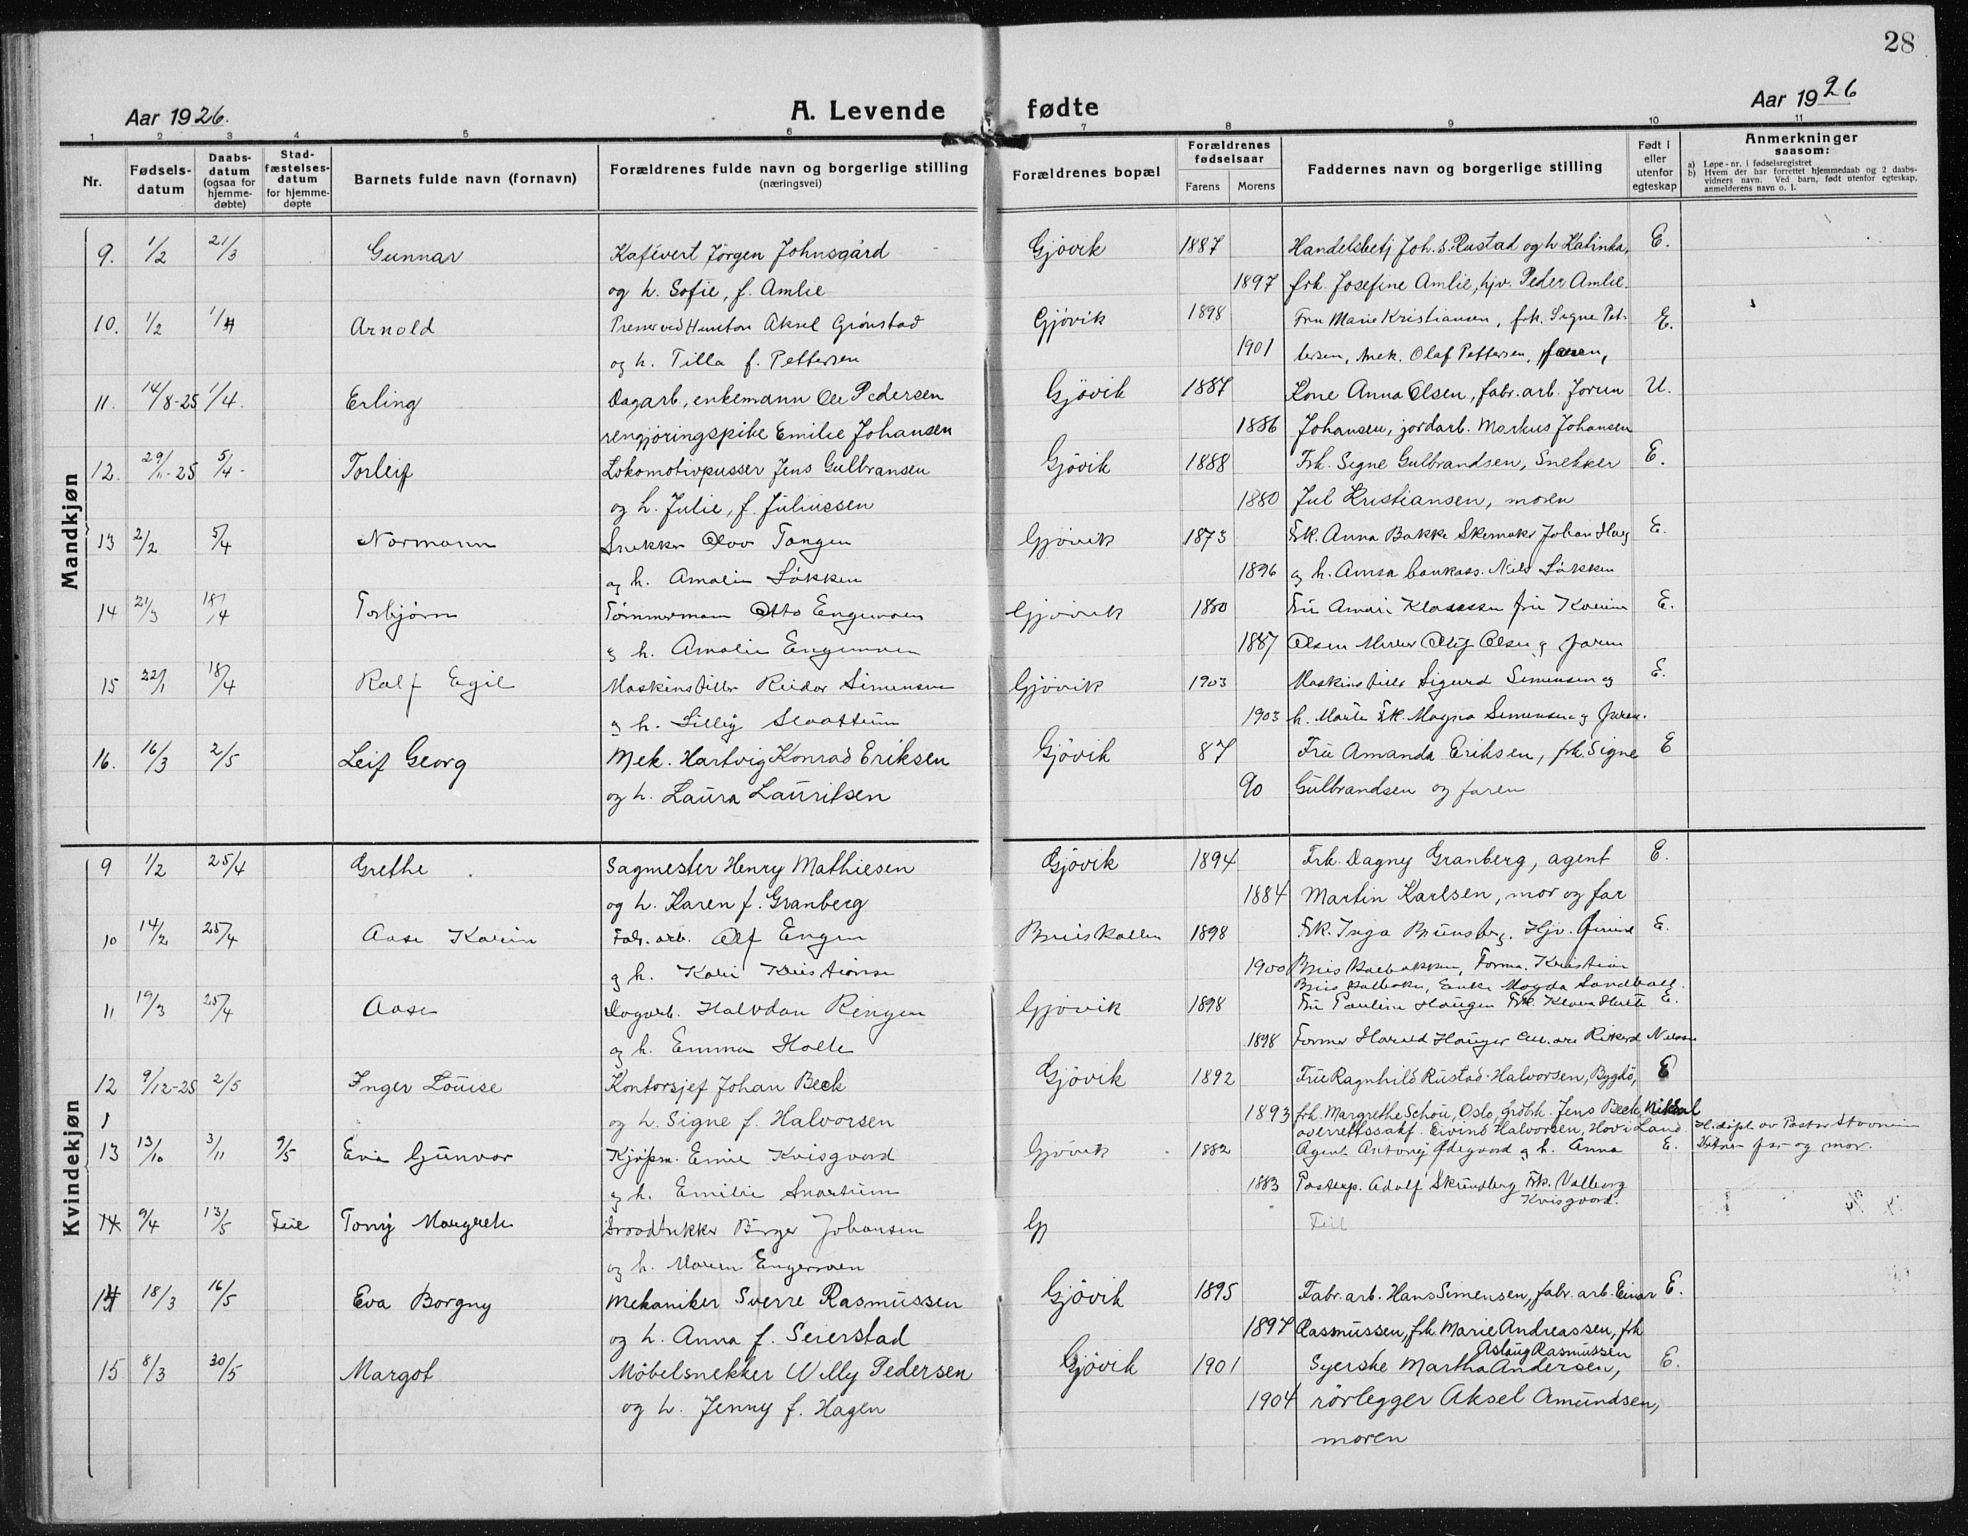 28
Aar 1926. A. Levende fødte Aar 1926
1 2 3 4 5 6 7 8 9 10 11
Nr. Fødsels-datum Daabs-datum (ogsaa for hjemme-døbte) Stad-fæstelses-datum for hjemme-døpte Barnets fulde navn (fornavn) Forældrenes fulde navn og borgerlige stilling (næringsvei) Forældrenes bopæl Forældrenes fødselsaar Farens Morens Faddernes navn og borgerlige stilling Født i eller utenfor egteskap Anmerkninger saasom:
a) Løpe-nr. i fødselsregistret
b) Hvem der har forrettet hjemmedaab og 2 daabs-vidners navn. Ved barn, født utenfor egteskap, anmelderens navn o. l.
Mandkjøn
9. 1/2 21/3 Gunnar Kafévert Jørgen Johnsgård Gjøvik 1887 Handelsbetj Joh. S. Rustad og h Katinka, E.
og h. Sofie, f. Amlie 1897 frk. Josefine Amlie, hjv. Peder Amlie.
10. 1/2 1/4 Arnold Presser ved Hunton Aksel Grønstad Gjøvik 1898 Fru Marie Kristiansen, frk. Signe Pet- E.
og h. Tilla f. Pettersen 1901 tersen, mek. Olaf Pettersen, faren,
11. 14/8-25 1/4. Erling Dagarb, enkemann Ole Pedersen Gjøvik 1887 Kone Anna Olsen, fabr. arb. Jorun U.
rengjøringspike Emilie Johansen 1886 Johansen, jordarb. Markus Johansen
12. 29/11-25 5/4- Torleif Lokomotivpusser Jens Gulbransen Gjøvik 1888 Frk. Signe Gulbrandsen, Snekker E.
og h. Julie, f. Juliussen 1880 Jul Kristiansen, moren
13 2/2 5/4 Normann Snekker Olav Tangen Gjøvik 1873 Frk. Anna Bakke Skomaker Johan Haug E.
og h. Amalie Løkken 1896 og h. Anna bankass. Nils Løkken
14 21/3 18/4 Torbjørn Tømmermann Otto Engesveen Gjøvik 1880 Fru Klaussen fru Karin E.
og h. Amalie Engesveen 1887 Olsen Murer Olsen og faren
15 22/1 18/4 Ralf Egil Maskinstiller Reidar Simensen Gjøvik 1903 Maskinstiller Sigurd Simensen og E.
og h. Lilly Slaattum 1903 h. Marte Frk. Magna Simensen og faren.
16. 16/3 2/5 Leif Georg Mek. Hartvig Konrad Eriksen Gjøvik 87 Fru Amanda Eriksen, frk. Signe E
og h. Laura Lauritsen 90 Gulbrandsen og faren
Kvindekjøn
9 1/2 25/4 Grethe Sagmester Henry Mathiesen Gjøvik 1894 Frk. Dagny Granberg, agent E.
og h. Karen f. Granberg 1884 Martin Karlsen, mor og far
10 14/2 25/4 Aase Karin Fabr. arb. Alf Engen 1898 Frk. Inga Brunsberg. Hjv. E.
og h. Kari Kristiansen 1900 Forma. Kristian
Enke Magda Sandbakk.
11 19/3 25/4 Aase Dagarb. Halvdan Ringen Gjøvik 1898 Fru Pauline Haugen Frk. E.
og h. Emma Holte 1898 Former Harald Haugen Rikard Nilsen
12 9/12-25 2/5 Inger Louise Kontorsjef Johan Beck Gjøvik 1892 Fru Ragnhild Rustad-Halvorsen, Bygdø, E
1 og h. Signe f. Halvorsen 1893 frk. Margrethe Schou, Oslo, grdbr. Jens Beck,
overrettssakf. Eivind Halvorsen, Hov i Land.
13 13/10 3/11 9/5 Eva Gunvor Kjøpm. Emil Kvisgaard Gjøvik 1882 Agent Antony Ødegaard og h. Anna E. H.døpt av Pastor Stavnem
og h. Emilie Snartum 1883 Postexp. Adolf Skundberg Frk. Valborg Vitner far og mor.
Kvisgaard.
14 9/4 13/5 Feil Tony Margrete Birger Johansen Gj Feil
og h. Maren Engesveen
14 18/3 16/5 Eva Borgny Mekaniker Sverre Rasmussen Gjøvik 1895 Fabr. arb. Hans Simensen, fabr. arb. Einar E.
og h. Anna f. Seierstad 1897 Rasmussen, frk Marie Andreassen, frk
Aslaug Rasmussen
15 8/3 30/5 Margot Møbelsnekker Willy Pedersen Gjøvik 1901 Syerske Martha Andersen, E.
og h. Jenny f. Hagen 1904 rørlegger Aksel Amundsen,
moren